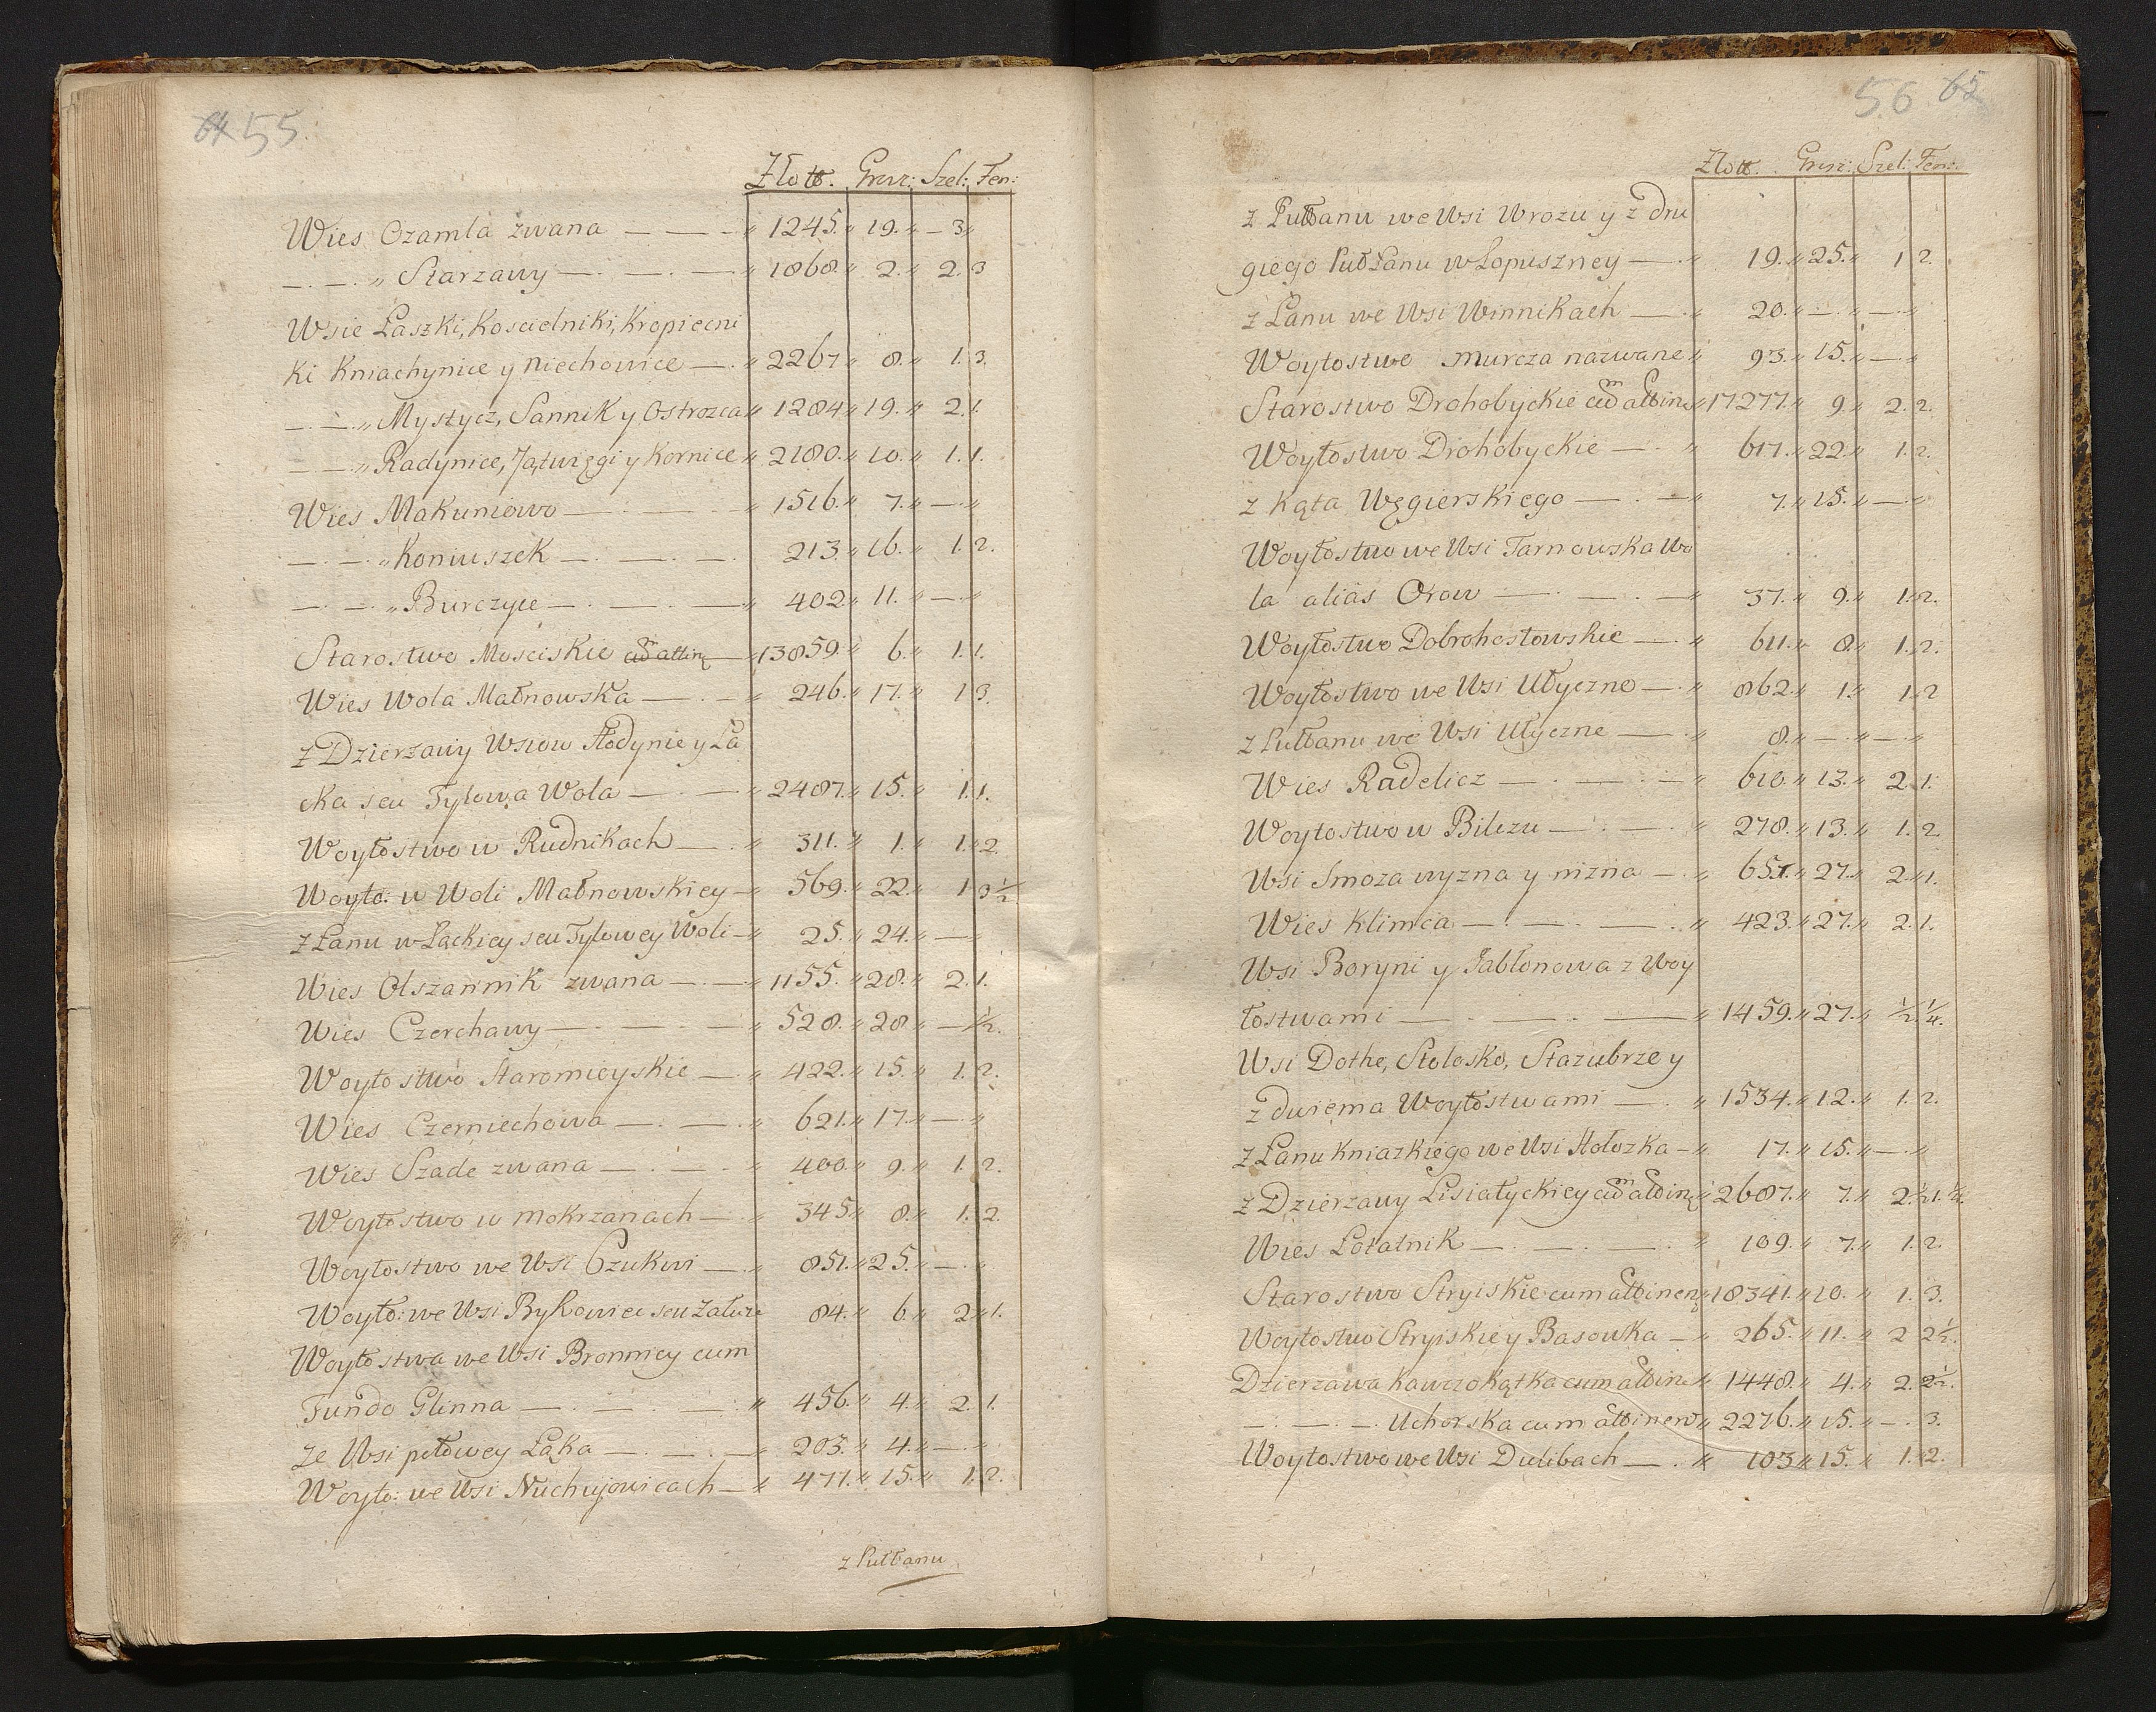 64 55.
Złott. Grosz: Szel: Fen:
Wies Czamla zwana — — — " 1245. " 19. " — 3 "
— . — . " Starzawy — . — . — " 1868. " 2. " 2. 3
Wsie Laszki, Koscielniki, Kropiecni
ki Kniachynice y Niechowice — . " 2267 " 8. " 1. 3.
— . — . " Mystycz, Sannik y Ostrozca " 1284 " 19. " 2. 1.
— — " Radynice, Jątwięgi y Kornice " 2180. " 10. " 1. 1.
Wies Makuniowo — . — . — " 1516. " 7. " — . "
— . — . " Koniuszek — . — . — . 213. " 16. " 1. 2.
— . — . " Burczyce — . — . — " 402. " 11. " — . "
Starostwo Mosciskie cum attin: " 13859. " 6. " 1. 1.
Wies Wola Małnowska — . — " 246. " 17. " 1 3.
z Dzierzawy Wsiow Hodynie y Łą
cka seu Tyłowa Wola — . — " 2487. " 15. " 1. 1.
Woytostwo w Rudnikach — . " 311. " 1. " 1. " 2.
Woyto: w Woli Małnowskiey — " 569. " 22. " 1 3 ½
z Łanu w Łąckiey seu Tyłowey Woli — " 25. " 24. " — "
Wies Olszannik zwana — . — " 1155. " 28. " 2. 1.
Wies Czerchawy — . — . — " 528. " 28. " — ½.
Woytostwo Staromieyskie — . " 422. " 15. " 1. 2.
Wies Czerniechowa — . — . " 621. " 17. " — . "
Wies Szade zwana — . — . " 400. " 9. " 1. 2.
Woytostwo w Mokrzanach — . " 345 " 8. " 1. 2.
Woytostwo we Wsi Czukwi — . " 851. " 25. " — . "
Woyto: we Wsi Bykowice seu 84. " 6. " 2 " 1.
Woytostwa we Wsi Bronnicy cum
Fundo Glinna — . — . — . " 456. " 4. " 2. 1.
Ze Wsi połowcy Łąka — . — . " 203. " 4. " — . "
Woyto: we Wsi — " 477. " 15. " 1. 2.
z Pułłanu
56 65
Złott. Grosz: Szel: Fen:
z Pułłanu we Wsi Wrozu y z dru
giego Pułłanu w Łopuszney — . " 19. " 25. " 1 2.
z Łanu we Wsi Winnikach — . " 20. " — . " — . "
Woytostwo Murcza nazwane " 93. " 15. " — . "
Starostwo Drohobyckie cum attin: " 17277. " 9. " 2. 2.
Woytostwo Drohobyckie — . " 617. " 22. " 1. 2.
z Kąta Węgierskiego — . — " 7. " 15. " — . "
Woytostwo we Wsi Tarnowska Wo
la alias Orow — . — . — " 37. " 9. " 1. 2.
Woytostwo Dobrohostowskie — . " 611. " 8. " 1. 2.
Woytostwo we Wsi Ułyczno — . " 862. " 1. " 1. 2
z Pułłanu we Wsi Ułyczne — . " 8. " — . " — . "
Wies Radelicz — . — . — " 610. " 13. " 2. 1.
Woytostwo w Bilczu — . — . " 278. " 13. " 1. 2.
Wsi Smoza wyzna y nizna — . " 657. " 27. " 2. " 1.
Wies Klimca — . — . — . " 423. " 27. " 2. 1.
Wsi Boryni y Jabłonowa z Woy
tostwami — . — . — " 1459. " 27. " ½ ¼.
Wsi Dołhe, Stołosko, y
z dwiema Woytostwami — . " 1534. " 12. " 1. 2.
z Łanu Kniazkiego we Wsi Hołozka — " 17. " 15. " — . "
z Dzierzawy Lisiatyckiey cum attin: " 2687. " 7. " 2 ½ 1. ½.
Wies Łotatnik — . — . — . " 109. " 7. " 1. 2.
Starostwo Stryiskie cum attinen: " 18341. " 10. " 1. 3.
Woytostwo Stryiskie y Basowka — " 265. " 11. " 2 2½.
Dzierzawa Kawczokątka cum attin: " 1448. " 4. " 2. 2½.
— . — . — Uchorska cum attinen: " 2276. " 15. " — . 3.
Woytostwo we Wsi Dulibach — . " 103 " 15. " 1. 2.